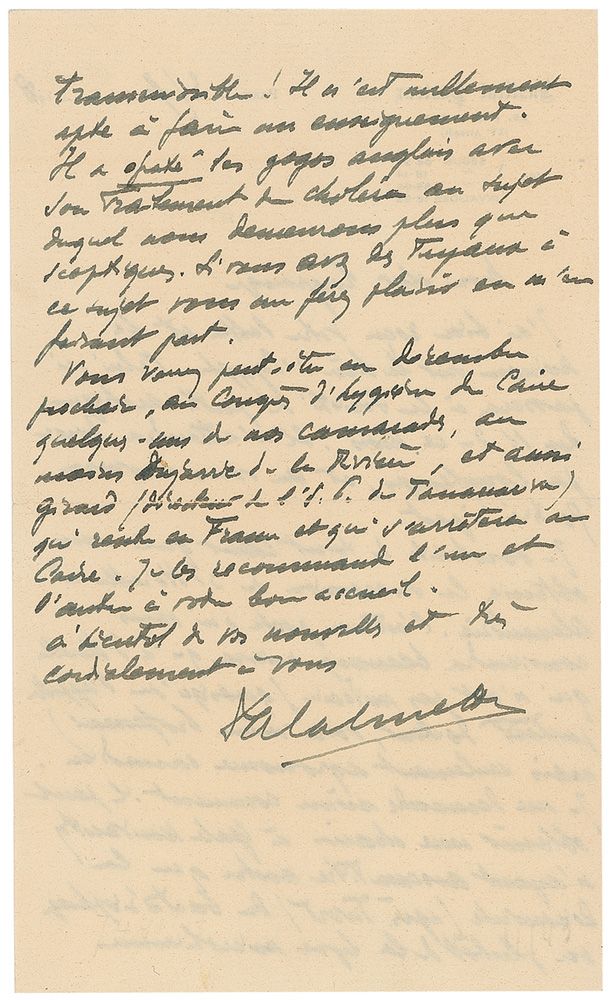 transmissible ! Il n'est nullement
apte à faire un enseignement.
Il a "épaté" les gogos anglais avec
son traitement du choléra au sujet
duquel nous demeurons plus que
sceptiques. Si vous avez des tuyaux à
ce sujet vous me ferez plaisir en m'en
faisant part.
Vous verrez peut-être en décembre
prochain, au Congrès d'hygiène du Caire
quelques-uns de nos camarades, au
moins Dujarric de la Rivière, et aussi
Girard (directeur de l'I. P. de Tananarive)
qui rentre en France et qui s'arrêtera au
Caire. Je les recommande l'un et
l'autre à votre bon accueil.
à bientôt de vos nouvelles et très
cordialement à vous
Calmette